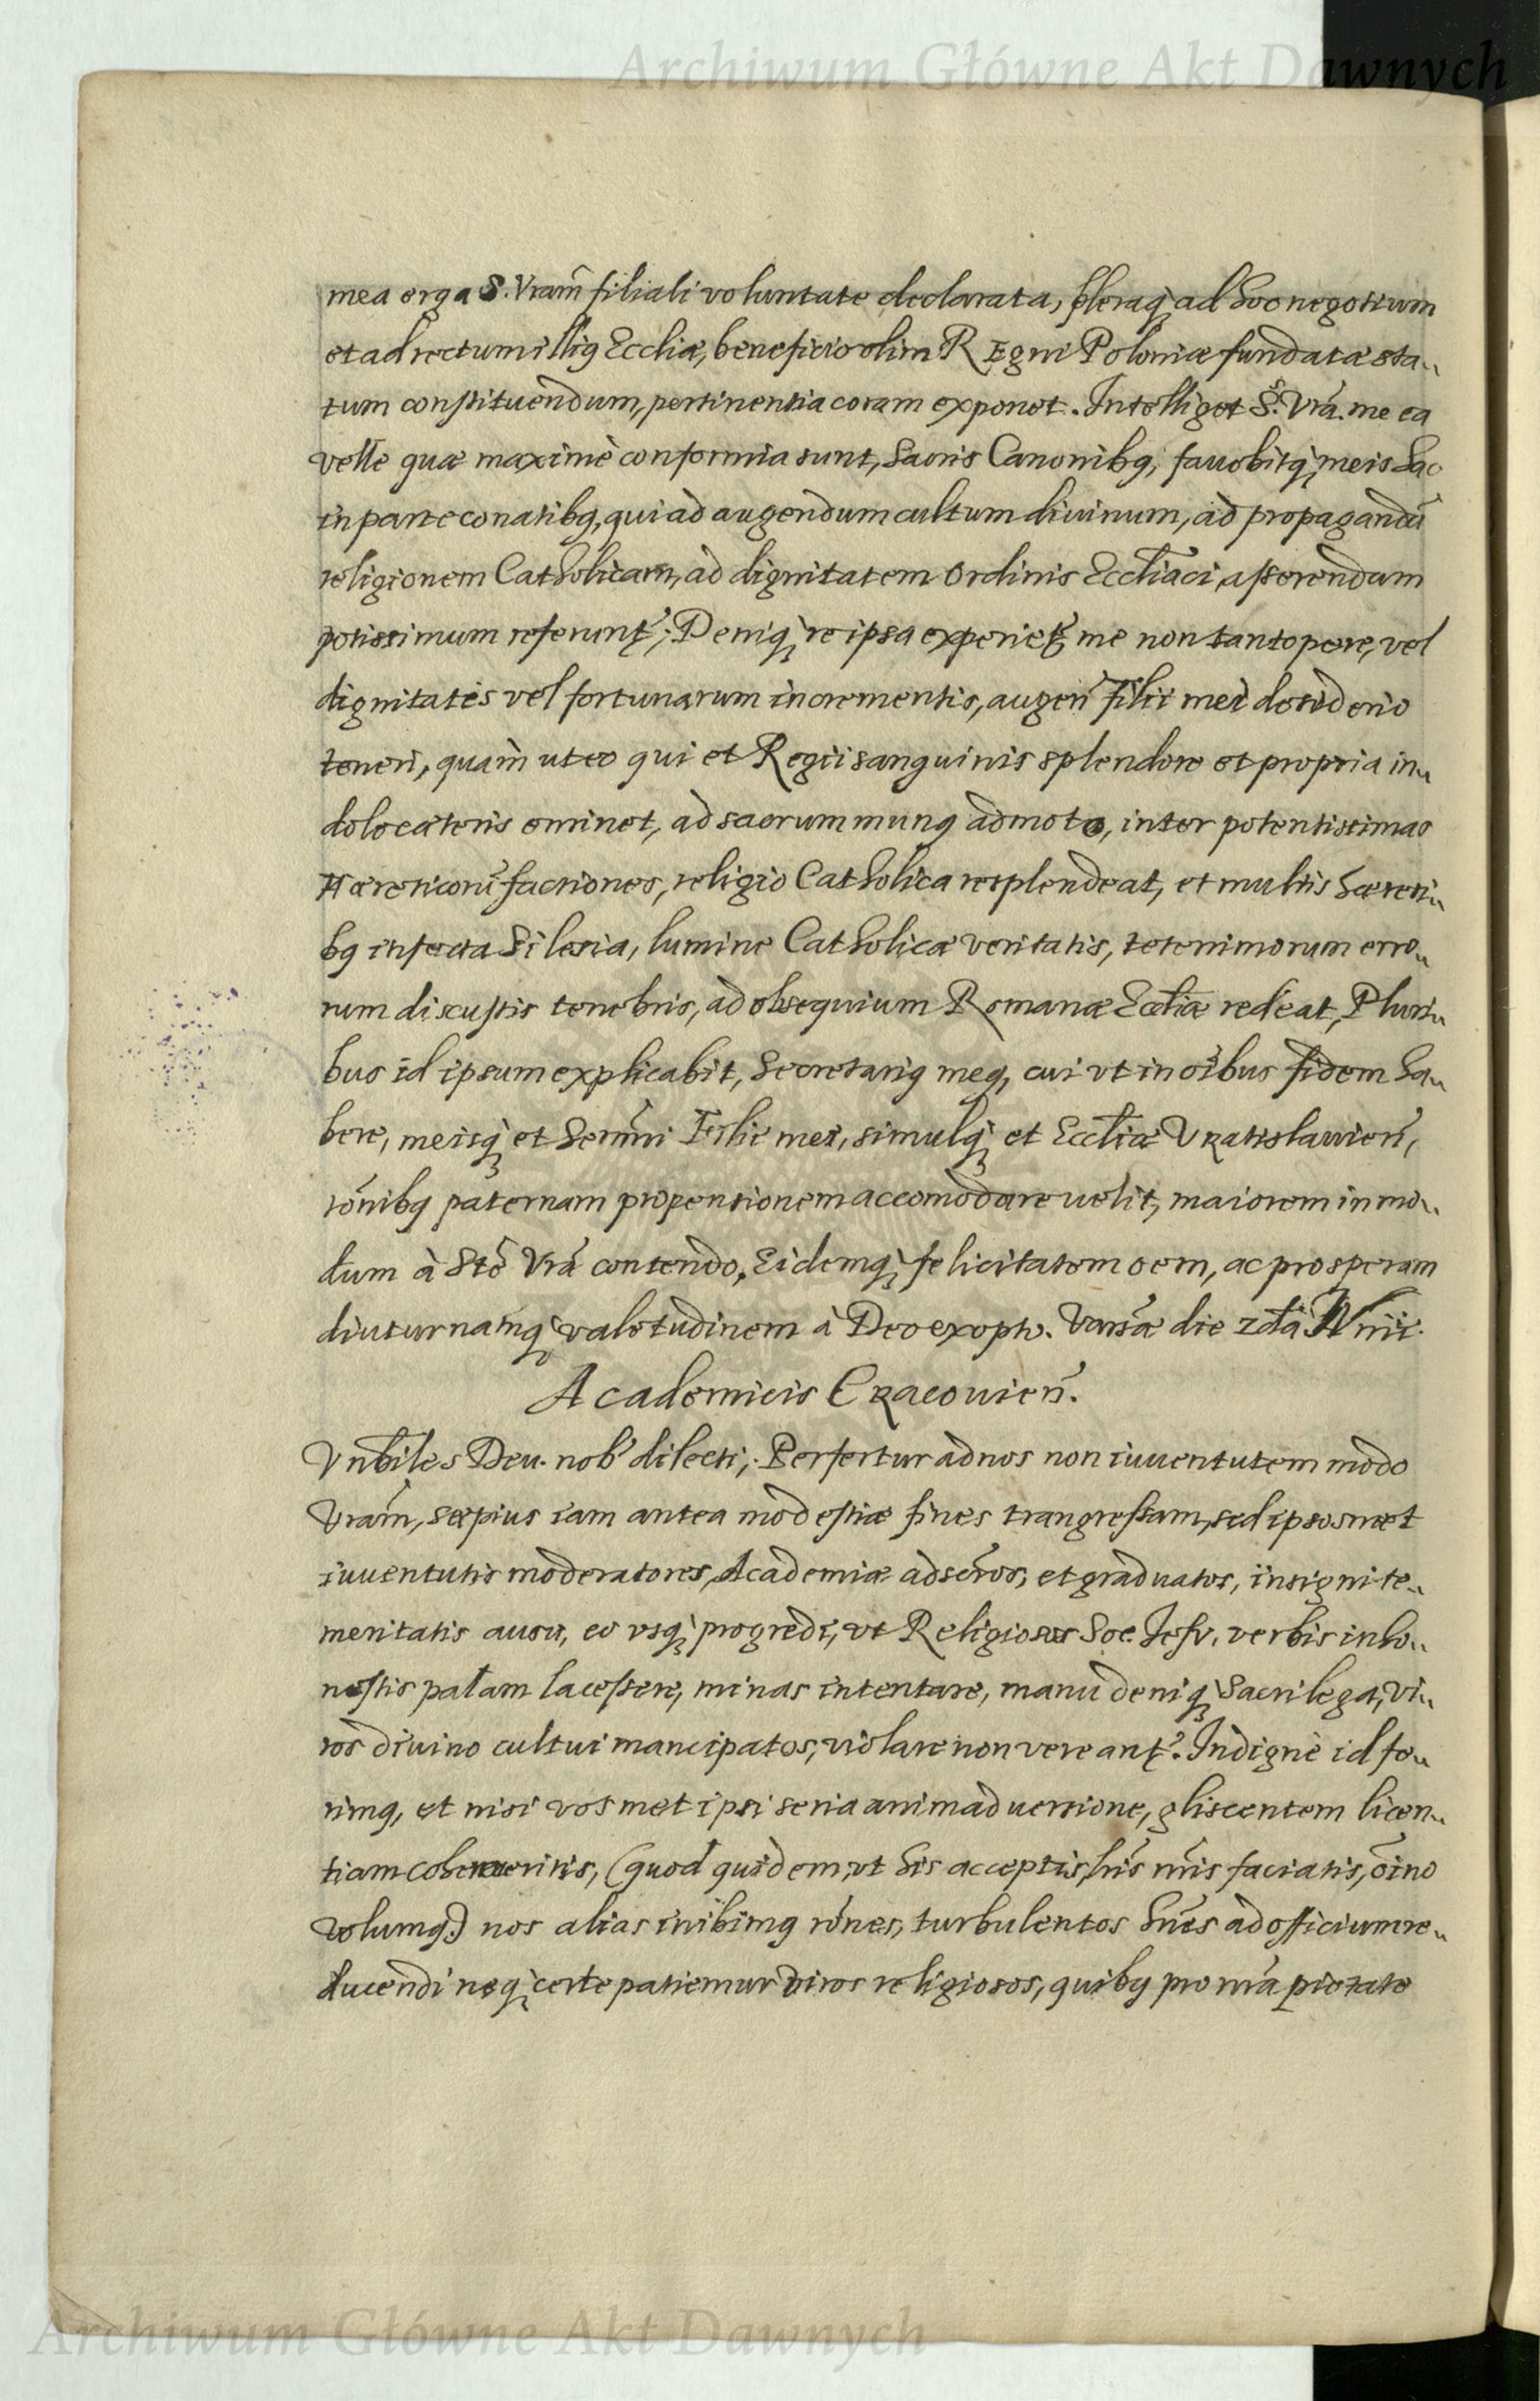 Archiwum Główne Akt Dawnych
mea erga S. Vrãm filiali voluntate declarata, pleraq; ad hoc negotium
et ad rectum illiq Eccliæ, beneficio olim REgni Poloniæ fundatæ sta-
tum constituendum, pertinentia coram exponet. Intelliget S. Vrã. me ea
velle quæ maximè conformia sunt, Sacris Canonibq, favebitq; meis hac
in parte conatibq, qui ad augendum cultum divinum, ad propagandũ
religionem Catholicam, ad dignitatem Ordinis Eccliaci, asserendam
potissimum referunt; Deniq; re ipsa experiet me non tantopere, vel
dignitatis vel fortunarum incrementis, augeri filii mei desiderio
teneri, quàm ut eo qui et Regii sanguinis splendore et propria in-
dole cæteris eminet, ad sacrum munq admoto, inter potentissimas
Hæreticorũ factiones, religio Catholica resplendeat, et multis hæresi-
bq infecta Silesia, lumine Catholicæ veritatis, teterrimorum erro-
rum discussis tenebris, ad obsequium Romanæ Eccliæ redeat, Pluri-
bus id ipsum explicabit, Secretariq meq, cui vt in oibus fidem ha-
bere, meisq; et Sermi Filii mei, simulq; et Eccliæ Vratislavien,
rõnibq paternam propensionem accomodare uelit, maiorem in mo-
dum à Stẽ Vrã contendo, Eidemq; felicitatem oem, ac prosperam
diuturnamq; valetudinem à Deo exopto. Varsæ die 2da Iunii.
Academicis Cracovien.
Vnbiles Deu. nob dilecti; Perfertur ad nos non iuventutem modo
Vrãm, sæpius iam antea modestiæ fines trangressam, sed ipsosmet
iuuentutis moderatores, Academiæ adscros, et graduatos, insigni te-
meritatis ausu, eo vsq; progredi, vt Religiosos Soc. Jesv, verbis inho-
nestis palam lacessere, minas intentare, manu deniq; Sacrilega, vi-
ros divino cultui mancipatos, violare non vereant. Indignè id fe-
rimq, et nisi vosmet ipsi seria animaduersione, gliscentem licen-
tiam coherceritis, (quod quidem, vt his acceptis, lris nris faciatis, oino
volumq) nos alias inibimq rões, turbulentos hnes ad officium re-
ducendi neq; certe patiemur viros religiosos, quibq pro nrã pietate
Archiwum Główne Akt Dawnych